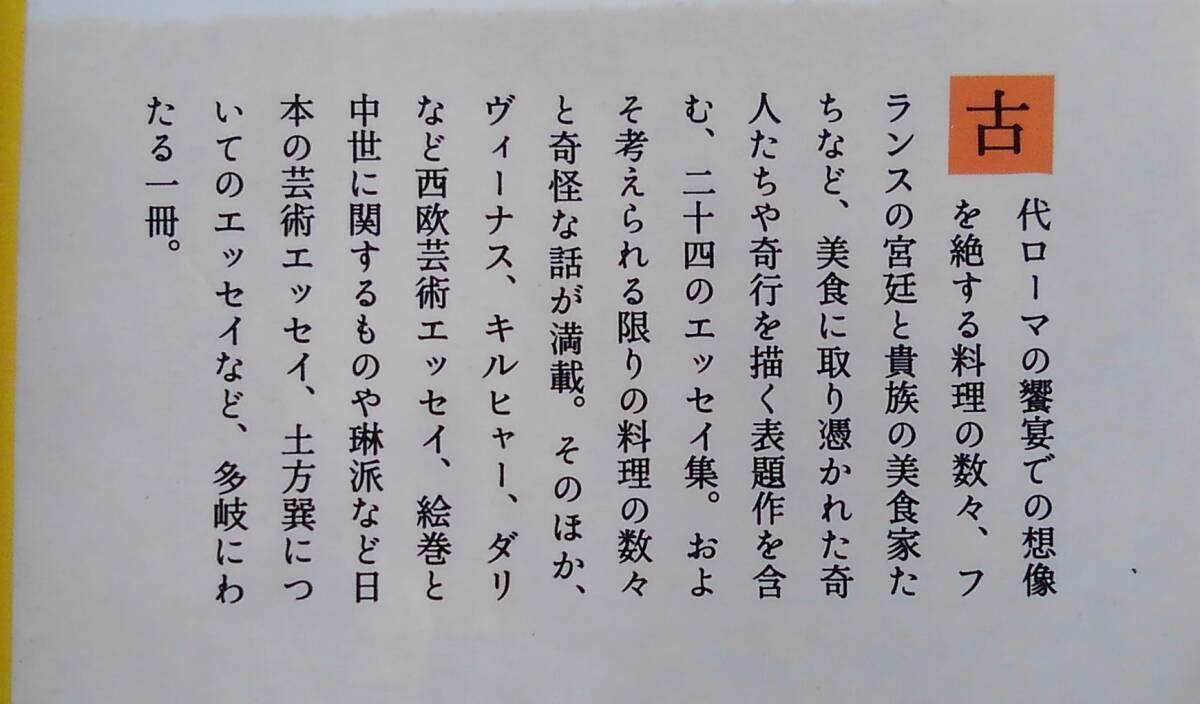 古代ローマの饗宴での想像
を絶する料理の数々、フ
ランスの宮廷と貴族の美食家た
ちなど、美食に取り憑かれた奇
人たちや奇行を描く表題作を含
む、二十四のエッセイ集。およ
そ考えられる限りの料理の数々
と奇怪な話が満載。そのほか、
ヴィーナス、キルヒャー、ダリ
など西欧芸術エッセイ、絵巻と
中世に関するものや琳派など日
本の芸術エッセイ、土方巽につ
いてのエッセイなど、多岐にわ
たる一冊。